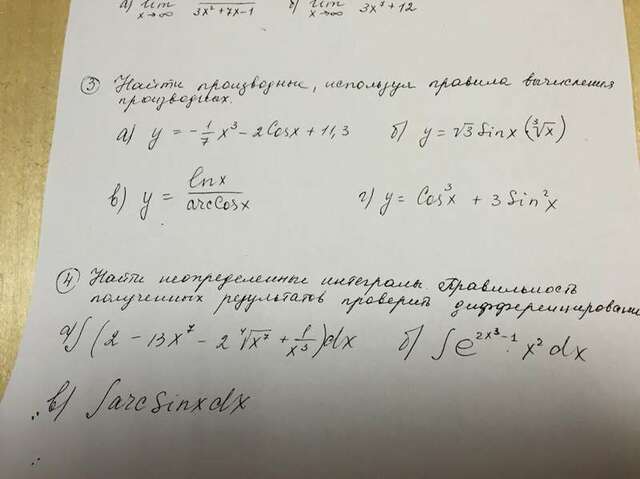 а) lim x→∞ / 3x²+7x-1 б) lim x→∞ 3x⁷+12
③ Найти производные, используя правила вычисления
производных.
а) y = -1/7 x³ - 2Cosx + 11,3 б) y = √3 Sinx · (∛x)
в) y = lnx / arcCosx г) y = Cos³x + 3 Sin²x
④ Найти неопределенные интегралы. Правильность
полученных результатов проверить дифференцировани
а) ∫(2 - 13x⁷ - 2 ⁴√x⁷ + 1/x³)dx б) ∫ e^(2x³-1) · x² dx
в) ∫ arcSinx dx